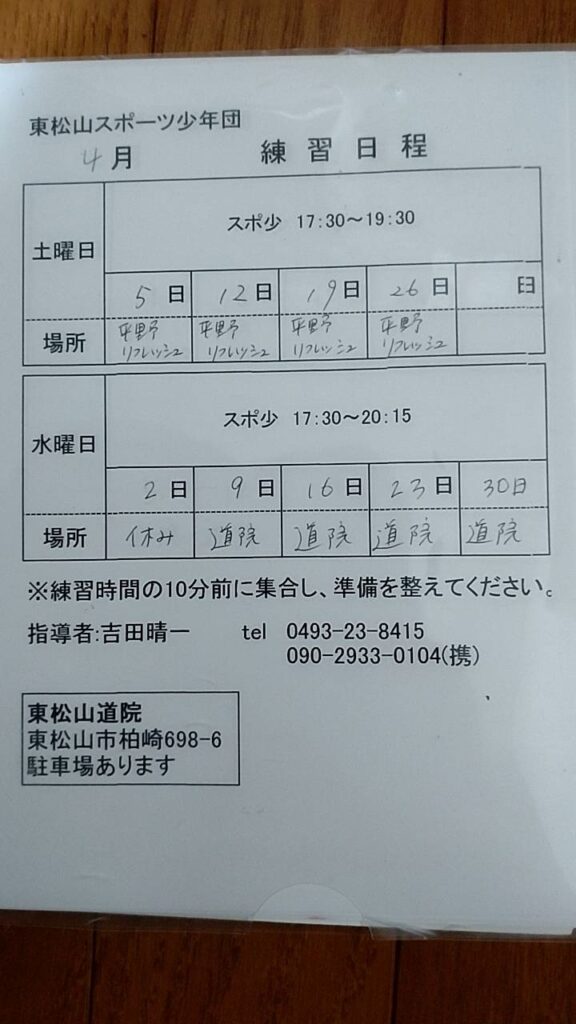 東松山スポーツ少年団
4月 練習日程
土曜日 スポ少 17:30～19:30
5日 12日 19日 26日 日
場所 平野リフレッシュ 平野リフレッシュ 平野リフレッシュ 平野リフレッシュ
水曜日 スポ少 17:30～20:15
2日 9日 16日 23日 30日
場所 休み 道院 道院 道院 道院
※練習時間の10分前に集合し、準備を整えてください。
指導者:吉田晴一 tel 0493-23-8415
090-2933-0104(携)
東松山道院
東松山市柏崎698-6
駐車場あります